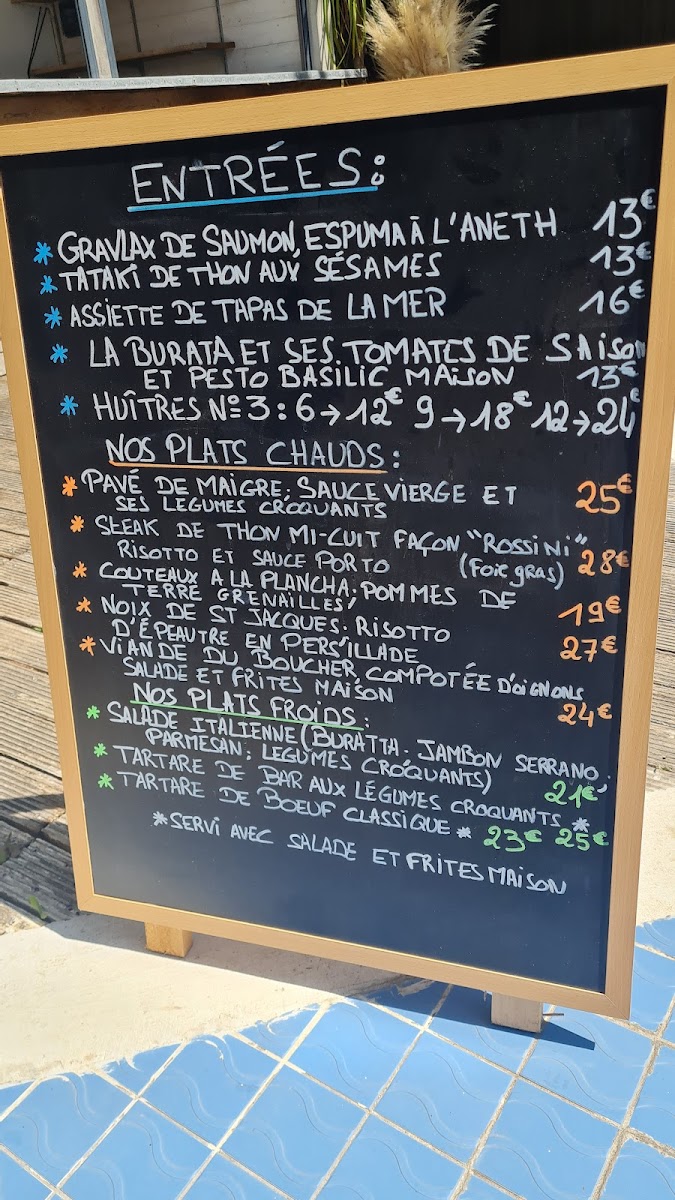 ENTRÉES:
* GRAVLAX DE SAUMON, ESPUMA À L'ANETH 13€
* TATAKI DE THON AUX SÉSAMES 13€
* ASSIETTE DE TAPAS DE LA MER 16€
* LA BURATA ET SES TOMATES DE SAISON
ET PESTO BASILIC MAISON 13€
* HUÎTRES N°3 : 6 → 12€ 9 → 18€ 12 → 24€
NOS PLATS CHAUDS :
* PAVÉ DE MAIGRE, SAUCE VIERGE ET
SES LEGUMES CROQUANTS 25€
* STEAK DE THON MI-CUIT FAÇON "ROSSINI"
RISOTTO ET SAUCE PORTO (FOIE GRAS) 28€
* COUTEAUX A LA PLANCHA. POMMES DE
TERRE GRENAILLES 19€
* NOIX DE ST JACQUES. RISOTTO
D'ÉPEAUTRE EN PERSILLADE 27€
* VIANDE DU BOUCHER, COMPOTÉE D'OIGNONS
SALADE ET FRITES MAISON 24€
NOS PLATS FROIDS :
* SALADE ITALIENNE (BURATTA. JAMBON SERRANO,
PARMESAN, LEGUMES CROQUANTS) 21€
* TARTARE DE BAR AUX LÉGUMES CROQUANTS *
* TARTARE DE BOEUF CLASSIQUE * 23€ 25€
*SERVI AVEC SALADE ET FRITES MAISON